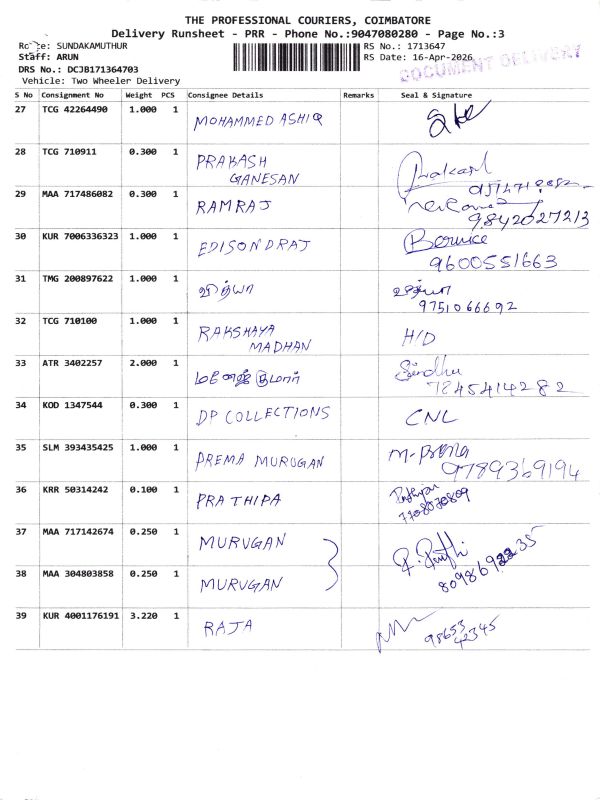 THE PROFESSIONAL COURIERS, COIMBATORE
Delivery Runsheet - PRR - Phone No.:9047080280 - Page No.:3
Route: SUNDAKAMUTHUR RS No.: 1713647
Staff: ARUN RS Date: 16-Apr-2026
DOCUMENT DELIVERY
DRS No.: DCJB171364703
Vehicle: Two Wheeler Delivery
S No Consignment No Weight PCS Consignee Details Remarks Seal & Signature
27 TCG 42264490 1.000 1 MOHAMMED ASHIQ
28 TCG 710911 0.300 1 PRAKASH
GANESAN Prakash
29 MAA 717486082 0.300 1 RAMRAJ
9842027213
30 KUR 7006336323 1.000 1 EDISON D RAJ Bernice
9600551663
31 TMG 200897622 1.000 1 வித்யா வித்யா
9751066692
32 TCG 710100 1.000 1 RAKSHAYA
MADHAN H/D
33 ATR 3402257 2.000 1 மனோஜ் குமார் Sindhu
7845414282
34 KOD 1347544 0.300 1 DP COLLECTIONS CNL
35 SLM 393435425 1.000 1 PREMA MURUGAN M-Prema
9789369194
36 KRR 50314242 0.100 1 PRATHIPA
7708030809
37 MAA 717142674 0.250 1 MURUGAN
38 MAA 304803858 0.250 1 MURUGAN
39 KUR 4001176191 3.220 1 RAJA 98653
42345